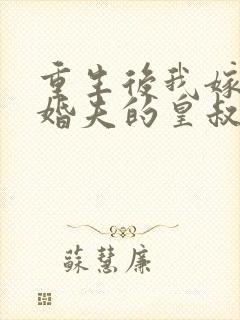 重生後我嫁
婚夫的皇叔
蘇慧廉